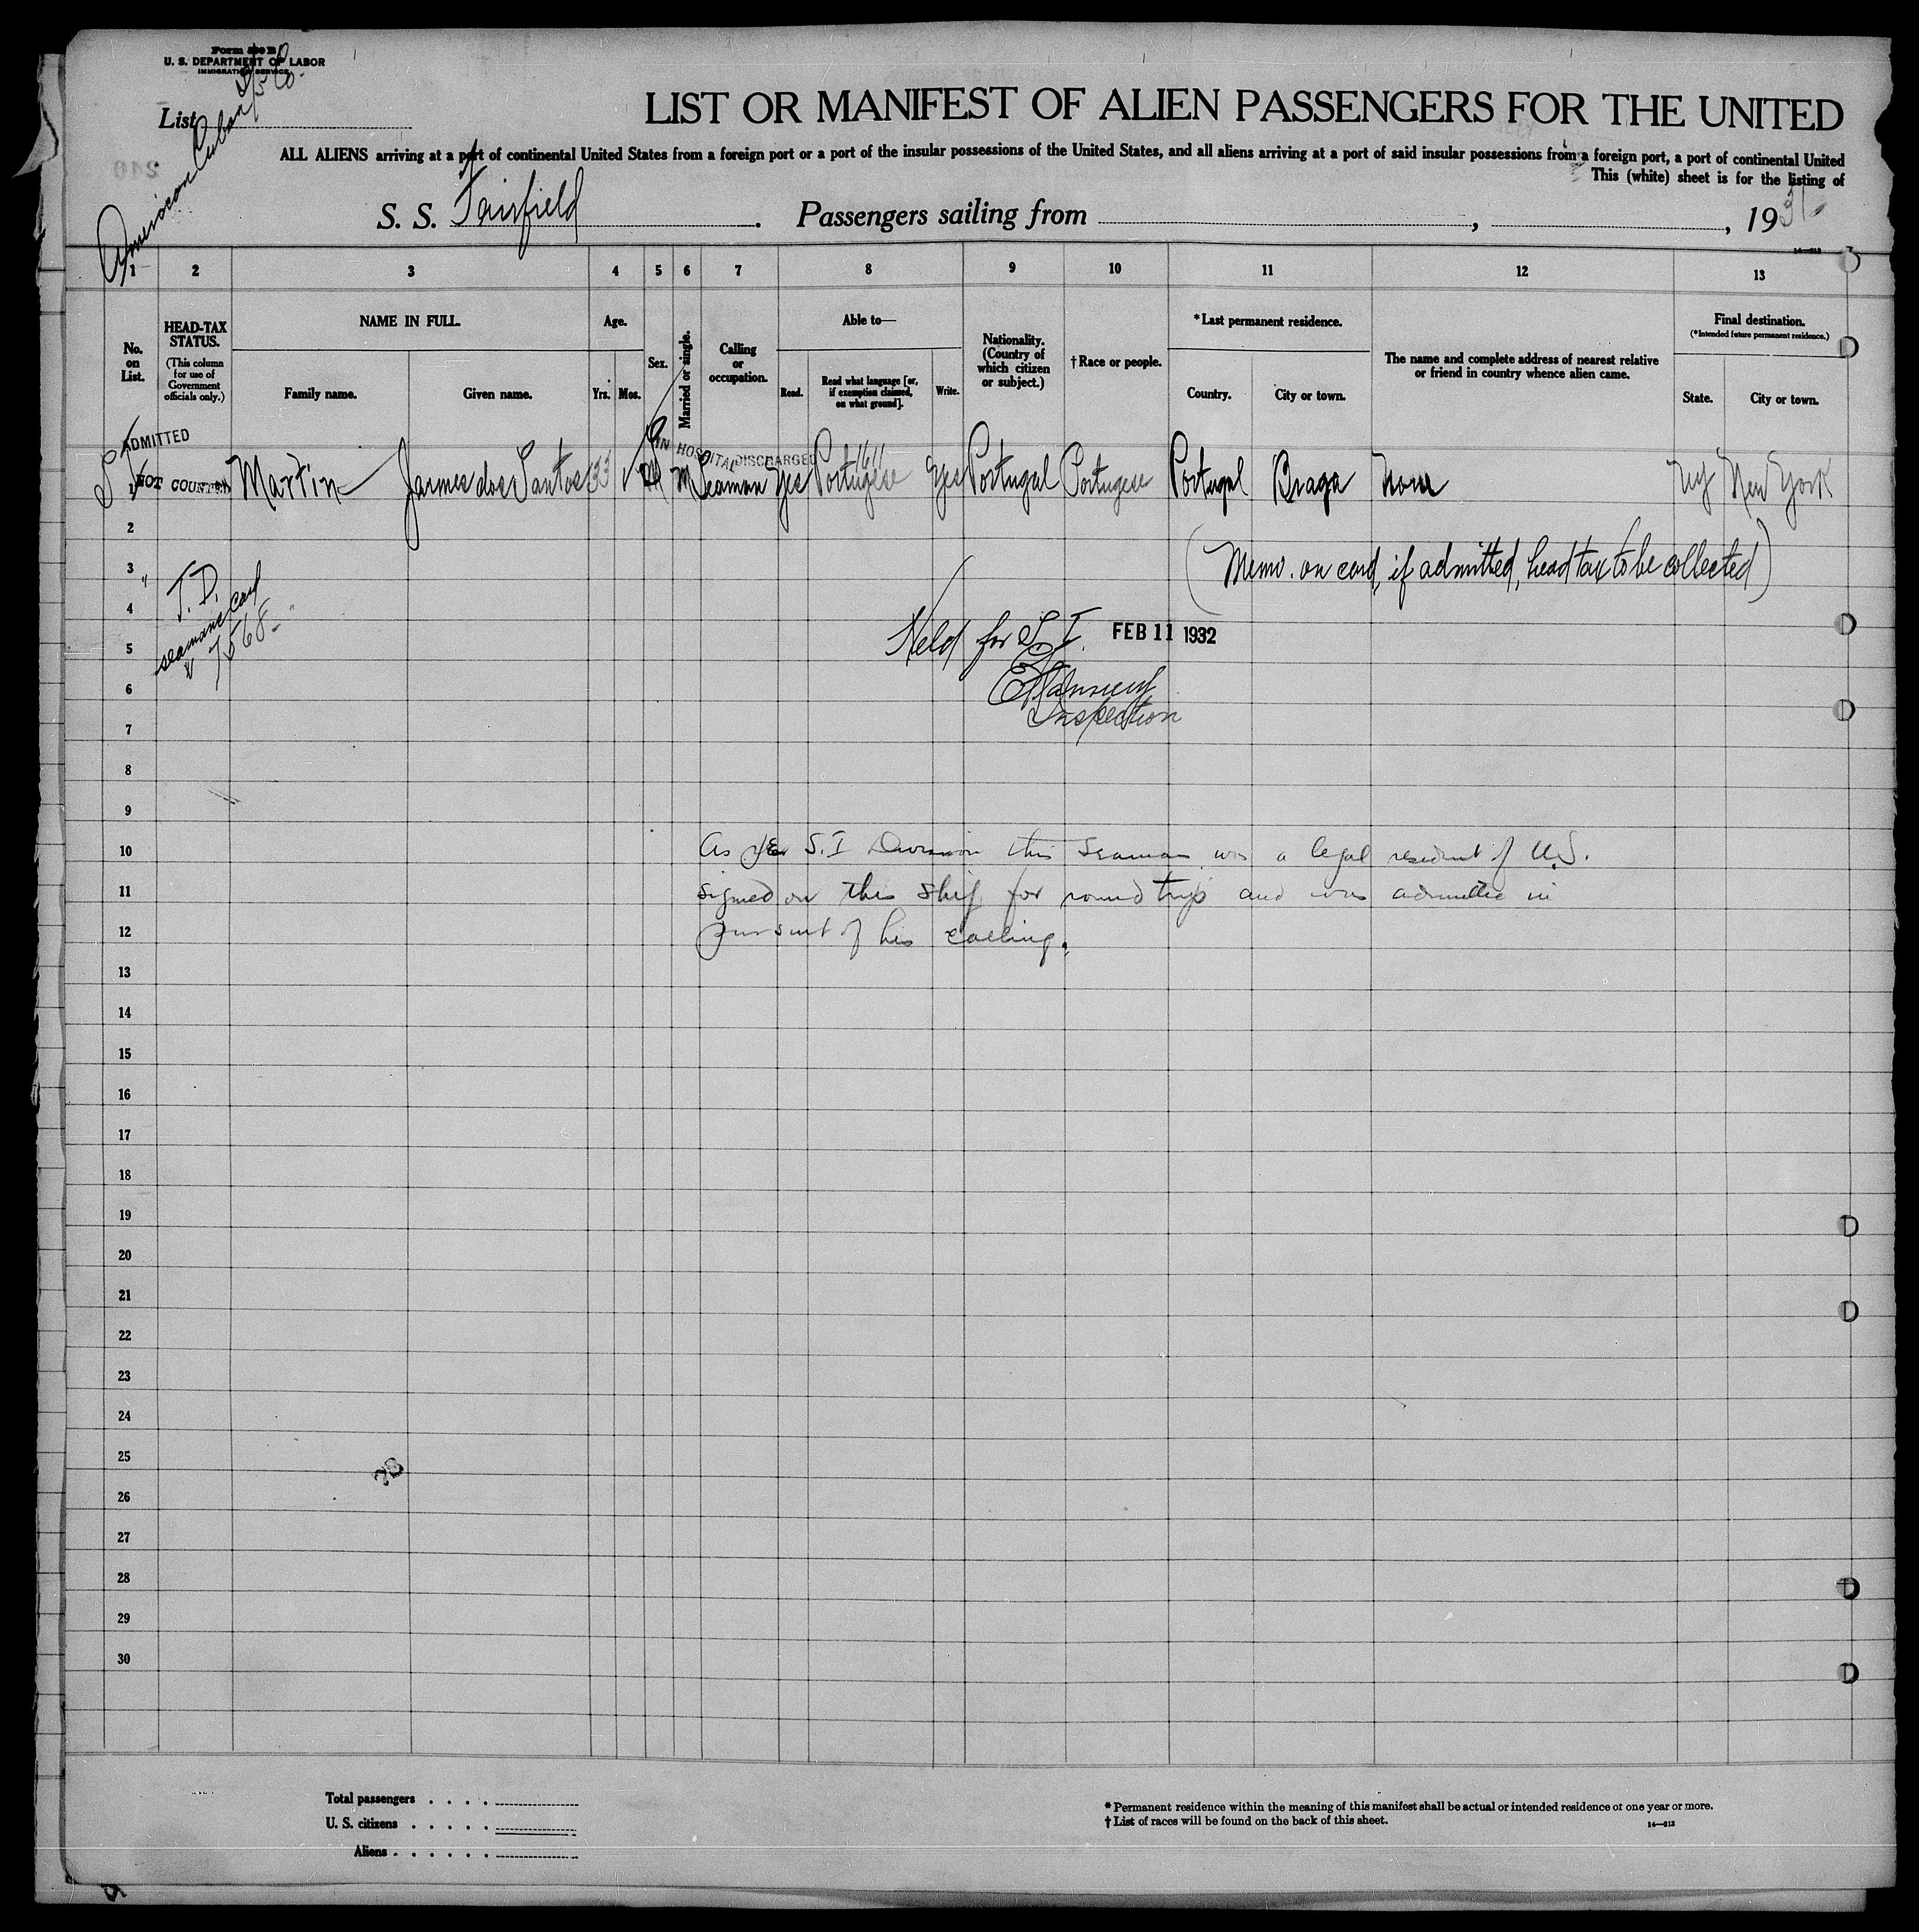 Form 500 B
U. S. DEPARTMENT OF LABOR
IMMIGRATION SERVICE
List
American Cuban
LIST OR MANIFEST OF ALIEN PASSENGERS FOR THE UNITED
ALL ALIENS arriving at a port of continental United States from a foreign port or a port of the insular possessions of the United States, and all aliens arriving at a port of said insular possessions from a foreign port, a port of continental United
This (white) sheet is for the listing of
S. S. Fairfield. Passengers sailing from , , 1931
14—213
1 2 3 4 5 6 7 8 9 10 11 12 13
No. on List.
HEAD-TAX STATUS.
(This column for use of Government officials only.)
NAME IN FULL.
Family name. Given name.
Age.
Yrs. Mos.
Sex.
Married or single.
Calling or occupation.
Able to—
Read. Read what language [or, if exemption claimed, on what ground]. Write.
Nationality. (Country of which citizen or subject.)
† Race or people.
*Last permanent residence.
Country. City or town.
The name and complete address of nearest relative or friend in country whence alien came.
Final destination.
(*Intended future permanent residence.)
State. City or town.
ADMITTED
IN HOSPITAL DISCHARGED
1611
1 NOT COUNTED Martin Jaimes dos Santos 33 M M Seaman Yes Portugese Yes Portugal Portugese Portugal Braga None NY New York
2
3 (Memo. on card, if admitted, head tax to be collected)
T. D.
4
seamans card
5 7568
Held for S. I. FEB 11 1932
6
Inspection
7
8
9
10 As per S.I Division this seaman was a legal resident of U.S.
11 signed on this ship for round trip and was admitted in
12 pursuit of his calling.
13
14
15
16
17
18
19
20
21
22
23
24
25
28
26
27
28
29
30
Total passengers . . . .
U. S. citizens . . . . .
Aliens . . . . . .
* Permanent residence within the meaning of this manifest shall be actual or intended residence of one year or more.
† List of races will be found on the back of this sheet.
14—213